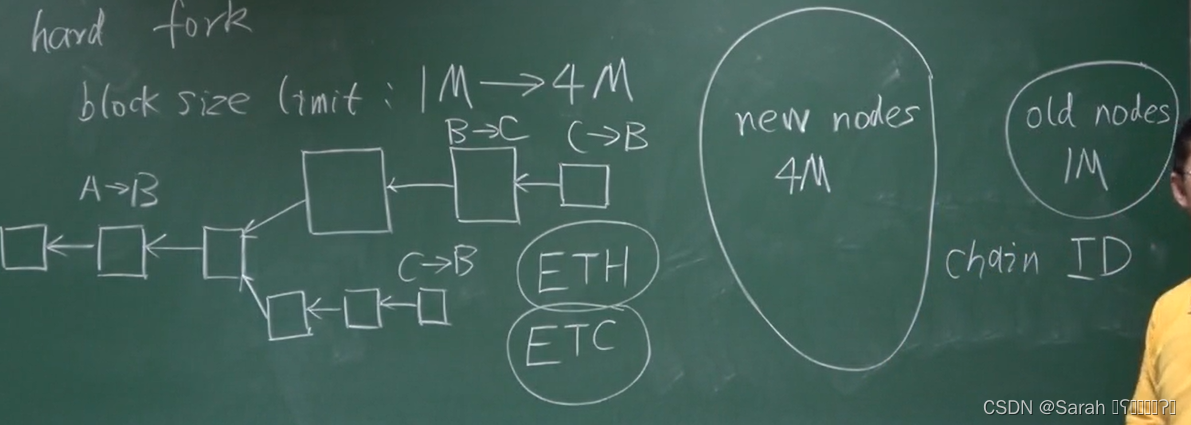 hard fork
block size limit : 1M → 4M
B→C
C→B
A→B
C→B
ETH
ETC
new nodes
4M
old nodes
1M
chain ID
CSDN @Sarah